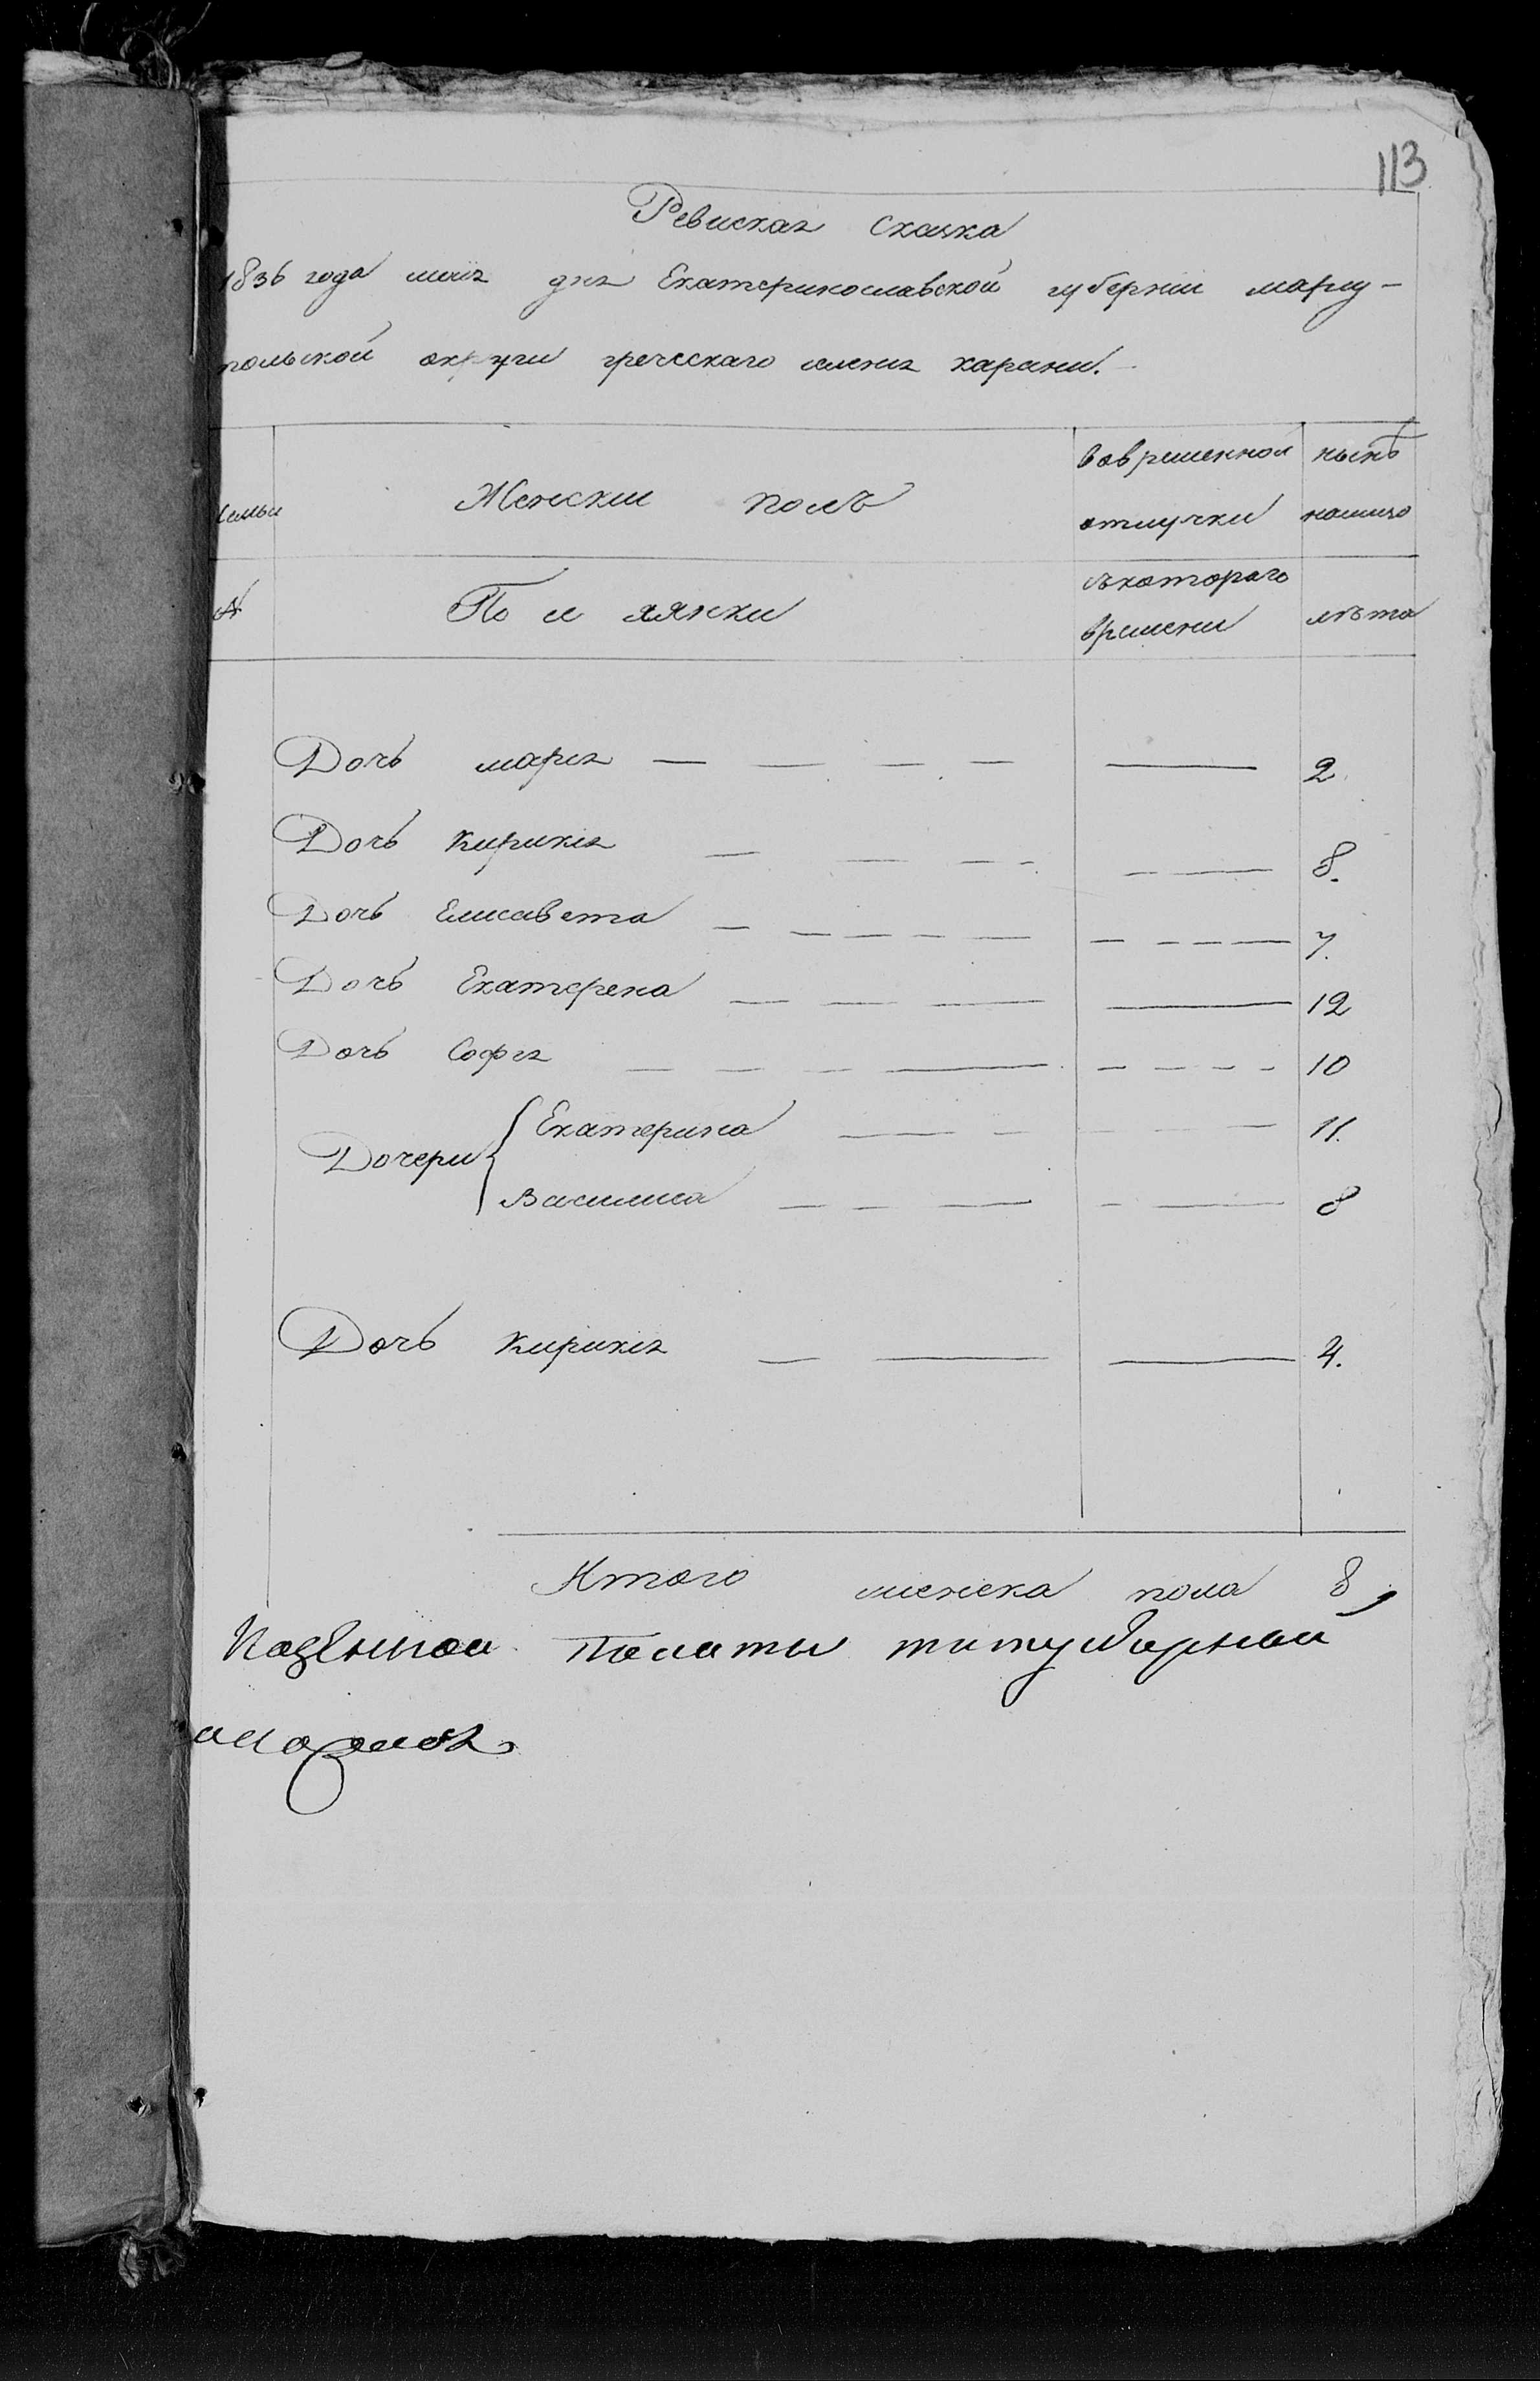 113
Ревиская скаска
1836 года маия дня Екатеринославской губернии мариу-
польской округи греческаго селения карани.
Семьи
Женскии полъ
вовременной отлучки
нынѣ налицо
№
съкотораго времени
лѣта
Дочь мария — — — — — 2.
Дочь Кирикия — — — — — — 8.
Дочь Елисавета — — — — — — — — — 7.
Дочь Екатерена — — — — 12
Дочь София — — — — — — — — 10
Дочери { Екатерина — — — — — 11.
Василиса — — — — — 8
Дочь Кирикия — — — 4.
Итого женска пола 8
Казенной Палаты титулярной